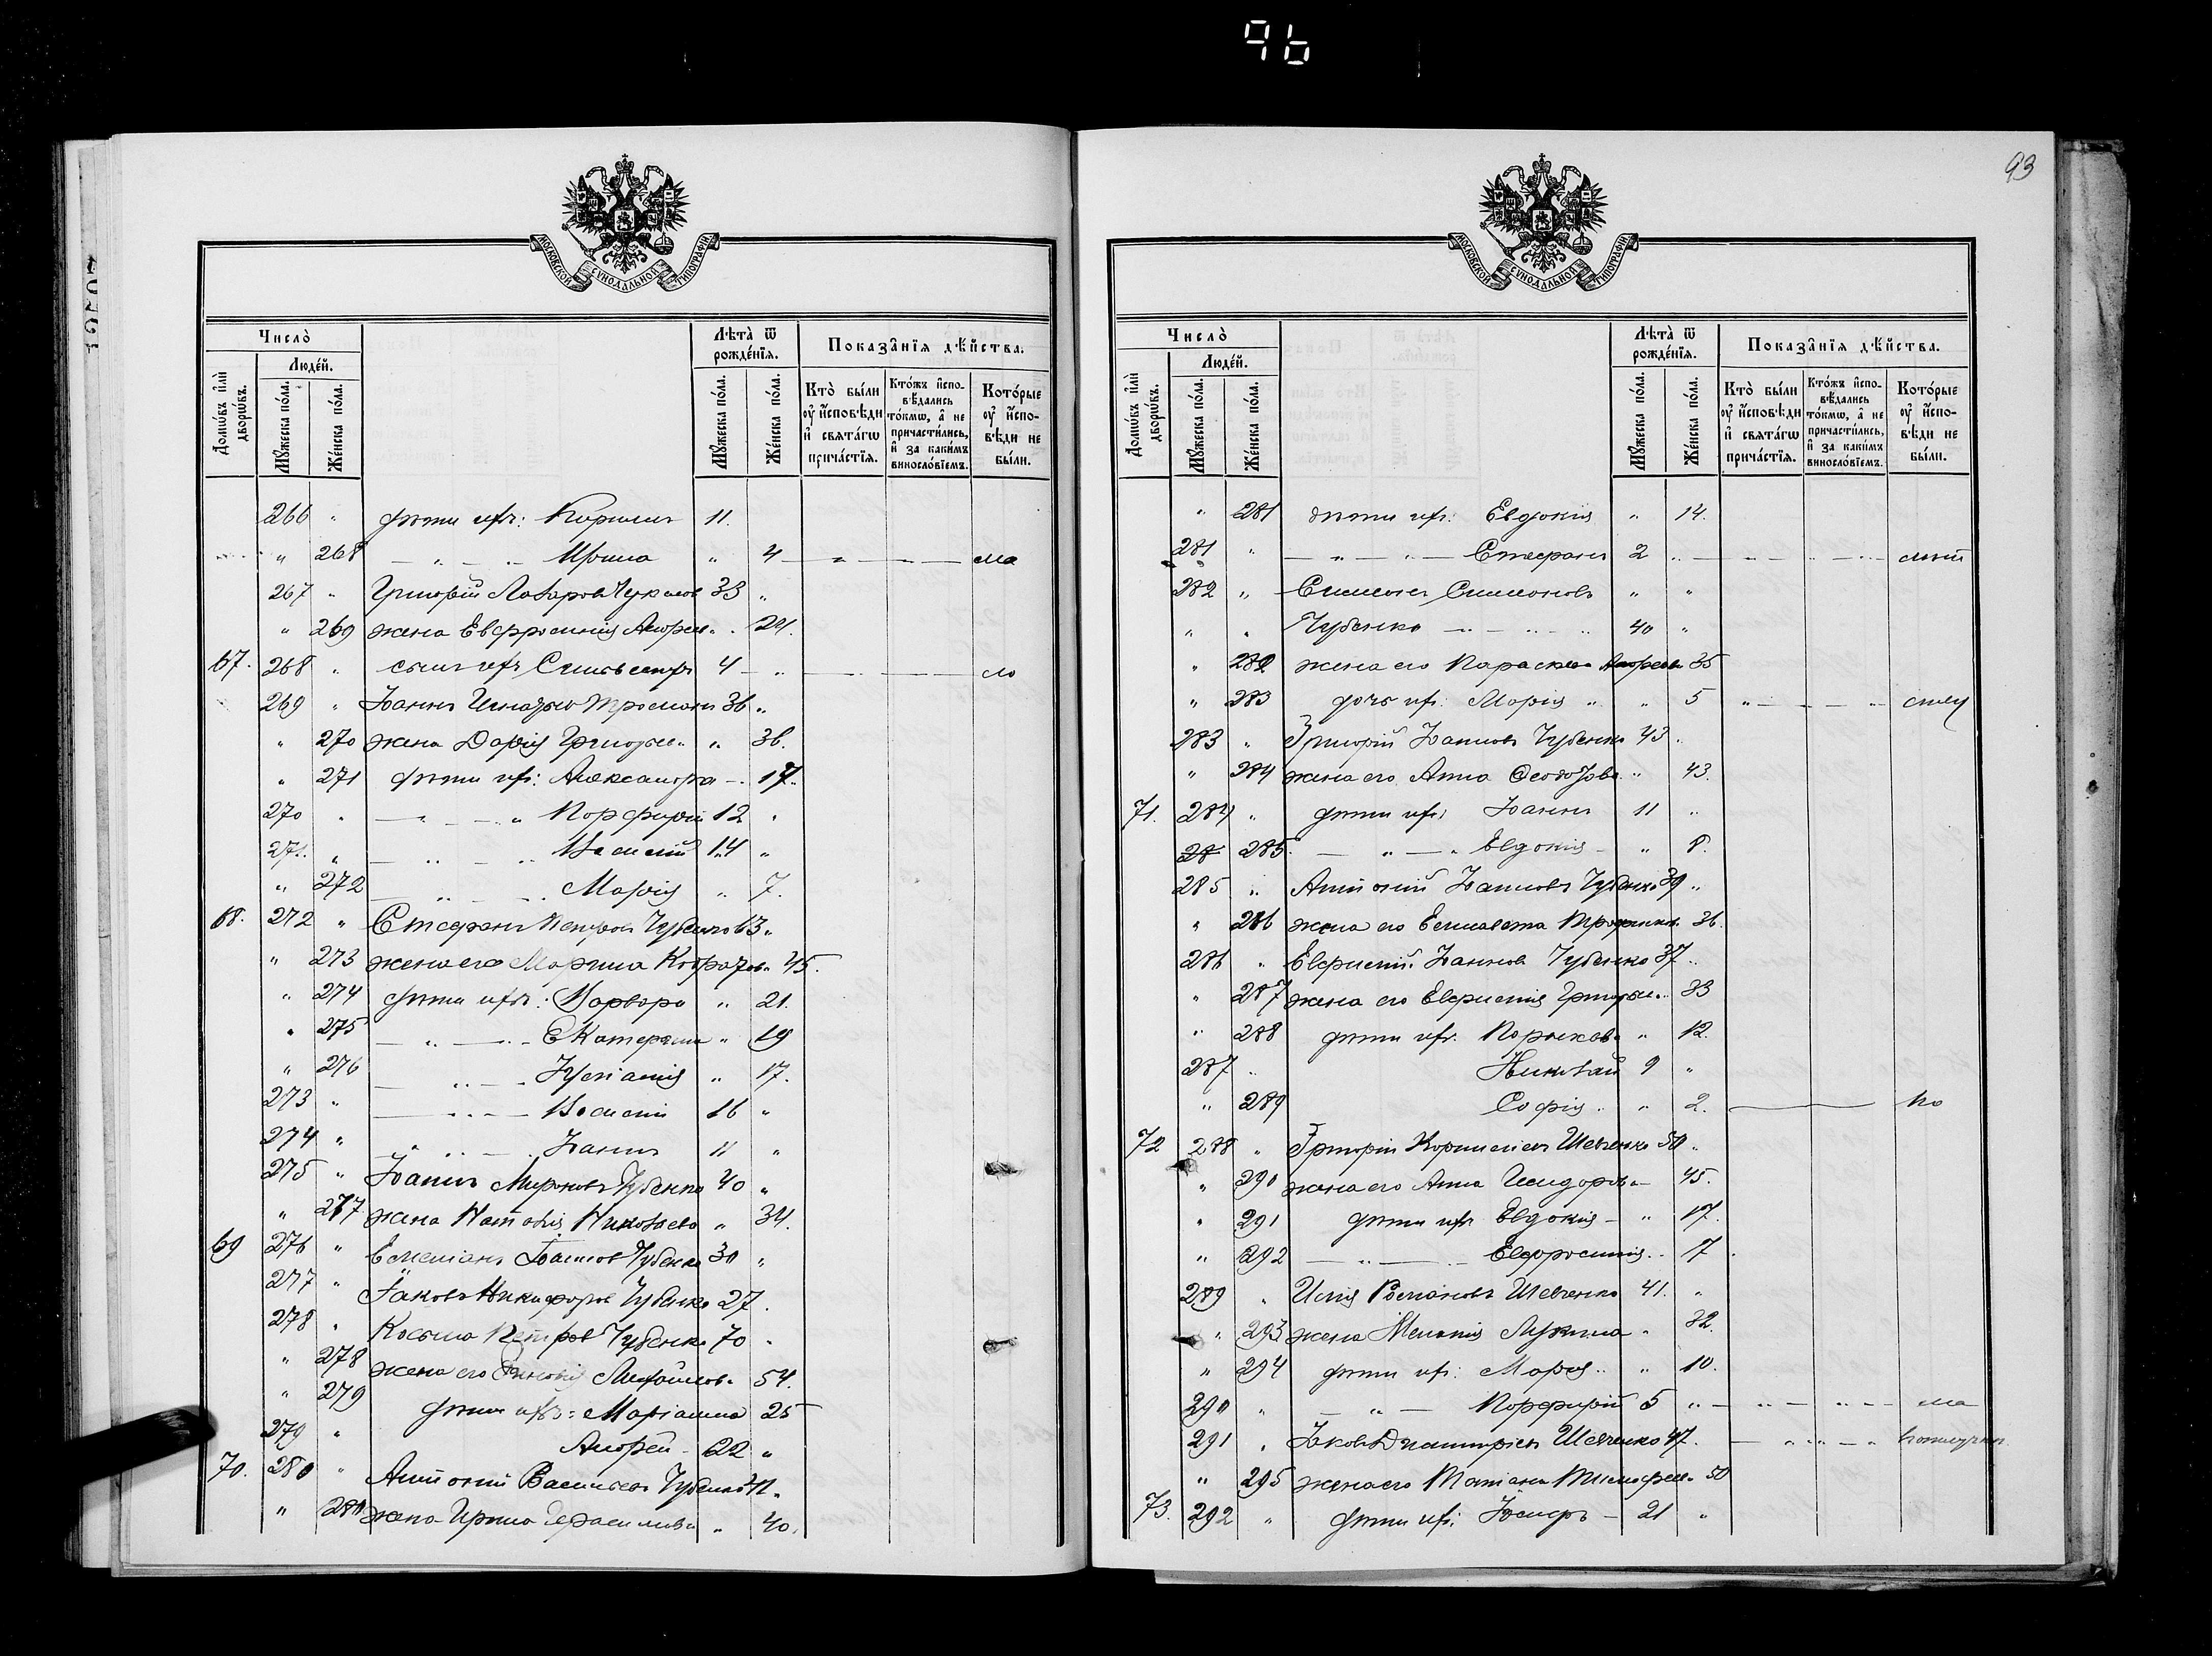 96
93
МОСКОВСКОЙ СУНОДАЛЬНОЙ ТИПОГРАФІИ
Число̀
Домѡ́въ и҆лѝ дворѡ́въ.
Люде́й.
Мꙋ́жеска по́ла.
Же́нска по́ла.
Лѣ́та ѿ рожде́нїѧ.
Мꙋ́жеска по́ла.
Же́нска по́ла.
Показа̑нїѧ дѣ́йства.
Кто̀ бы́ли оу҆ и҆сповѣ́ди и҆ свѧта́гѡ прича́стїѧ.
Кто́жъ и҆сповѣ́дались то́кмѡ, а҆ не причасти́лись, и҆ за каки́мъ виносло́вїемъ.
Кото́рые оу҆ и҆сповѣ́ди не бы́ли.
266 " дѣти ихъ: Кириллъ 11.
" 268 — " — Ирина " 4 — " — ма
267 " Григорій Лазаровъ 33 "
" 269 жена Евфросинія Андрее. " 24.
67. 268 " сынъ ихъ Сильвестръ 4 — " — ло
269 " Іоаннъ 36 "
" 270 жена Дарія Григорье. " 36.
" 271 дѣти ихъ: Александра — 17.
270 " — " — Порфирій 12 "
271. " — " — Василій 14 "
" 272 — " — Марія " 7.
68. 272 " Стефанъ Петровъ Чубенко 63 "
" 273 жена его Марина 45.
" 274 дѣти ихъ: Варвара " 21.
" 275 — " — Екатерина " 19
" 276 — " — Іуліанія " 17.
273 " — " — Василій 16 "
274 " — " — Іоаннъ 11 "
275 " Іоаннъ Мироновъ Чубенко 40 "
" 277 жена Наталія Николаева " 34.
69 276 " Емеліанъ Іоанновъ Чубенко 30 "
277 " Іаковъ Никифоровъ Чубенко 27.
278 " Косьма Петровъ Чубенко 70 "
" 278 жена его Зиновія Михайлов. 54.
" 279 дѣти ихъ: Маріанна 25
279 " Андрей — 22 "
70. 280 " Антоній Васильевъ Чубенко "
" 280 жена Ирина Герасимова " 40.
Число̀
Домѡ́въ и҆лѝ дворѡ́въ.
Люде́й.
Мꙋ́жеска по́ла.
Же́нска по́ла.
Лѣ́та ѿ рожде́нїѧ.
Мꙋ́жеска по́ла.
Же́нска по́ла.
Показа̑нїѧ дѣ́йства.
Кто̀ бы́ли оу҆ и҆сповѣ́ди и҆ свѧта́гѡ прича́стїѧ.
Кто́жъ и҆сповѣ́дались то́кмѡ, а҆ не причасти́лись, и҆ за каки́мъ виносло́вїемъ.
Кото́рые оу҆ и҆сповѣ́ди не бы́ли.
МОСКОВСКОЙ СУНОДАЛЬНОЙ ТИПОГРАФІИ
" 281 дѣти ихъ: Евдокія " 14.
281 " — " — Стефанъ 2 " —
282 " Симеонъ Симеоновъ " "
" " Чубенко — " — 40 "
" 282 жена его Параскева Андреева 35
" 283 дочь ихъ: Марія " " 5 " —
283 " Григорій Іанновъ Чубенко 43 "
" 284 жена его Анна Ѳеодоров. " 43.
71. 284 " дѣти ихъ: Іоаннъ 11 "
28 285. — " — " Евдокія — " 8.
285 " Антоній Іанновъ Чубенко 39 "
" 286 жена его Елисавета Трофимов. 36.
286 " Евфимій Іаннов Чубенко 37 "
" 287 жена его Евфимія Григорье. 33
" 288 дѣти ихъ: Параскева " 12.
287 " Николай 9 "
" 289 Софія " " 2. —
72 288 " Григорій Корниліевъ Шевченко 50 "
" 290 жена его Анна Исидоров. — 45.
" 291 дѣти ихъ Евдокія — " 17.
" 292 — " — Евфросинія. . 17
289 " Илія Романовъ Шевченко 41. "
" 293 жена Меланія Лукина " 32.
" 294 дѣти ихъ: Марія " " 10.
290 " — " — Порфирій 5 " — ма
291 " Іаковъ Димитріевъ Шевченко 47. —
" 295 жена его Татіана Тимофее. 50
73. 292 " дѣти ихъ: Іосифъ — 21 "